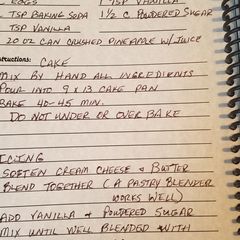 EGGS 1 TSP VANILLA
TSP BAKING SODA 1½ C POWDERED SUGAR
TSP VANILLA
20 OZ CAN CRUSHED PINEAPPLE W/JUICE
structions: CAKE
MIX BY HAND ALL INGREDIENTS
POUR INTO 9 X 13 CAKE PAN
BAKE 40-45 MIN.
DO NOT UNDER OR OVER BAKE
ICING
SOFTEN CREAM CHEESE & BUTTER
BLEND TOGETHER (A PASTRY BLENDER
WORKS WELL)
ADD VANILLA & POWDERED SUGAR
MIX UNTIL WELL BLENDED WITH